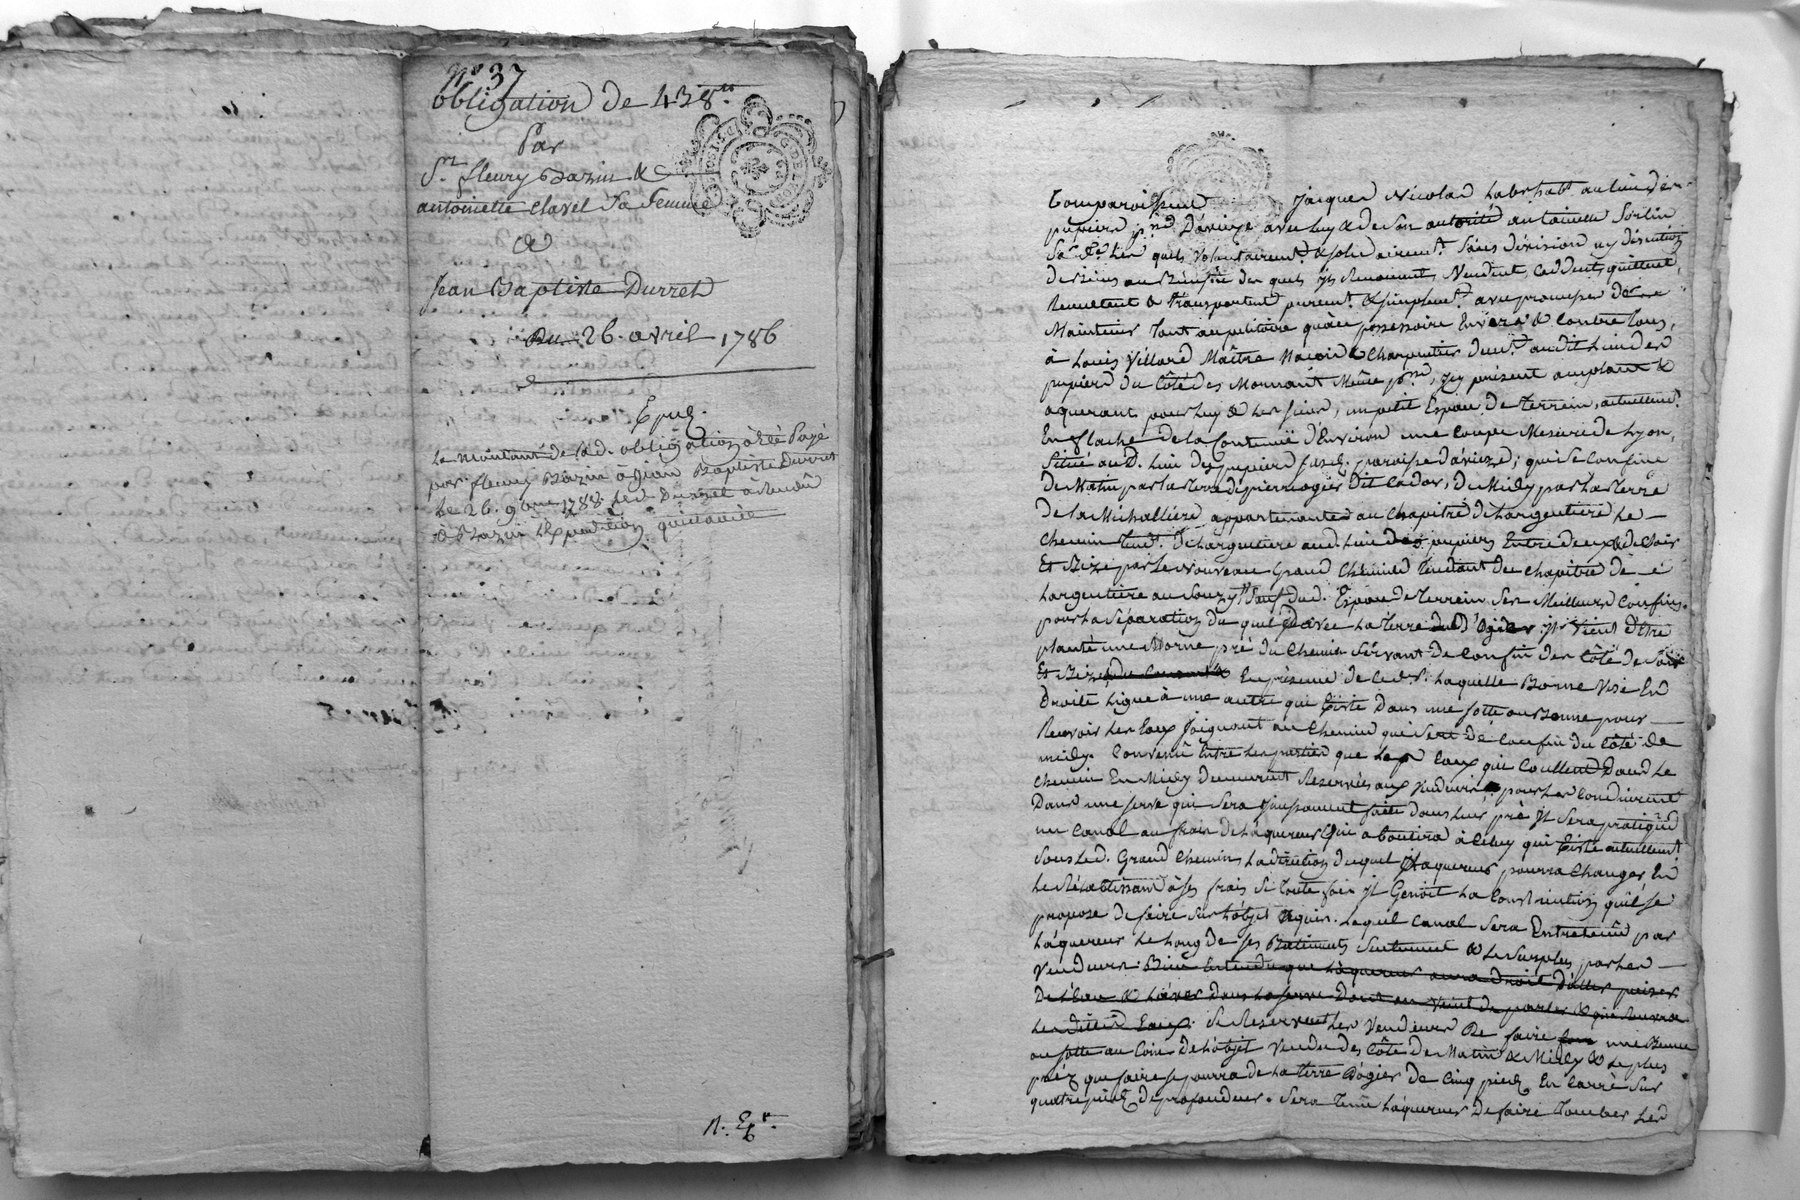 N° 37
obligation de 438tt
Par
Sr. fleury Bazin &
antoinette Clavel Sa femme
a
Jean Baptiste Durret
Du 26. avril 1786
Expéd.
Le montant de lad. obligation a été Payé
par fleury Bazin a Jean Baptiste Durret
Le 26. 9bre 1788. led. Durret a
a Bazin Lexpedition quittancée
n. Ex.
Comparoissent Jacques Nicolas Labr habt. au lieu des
pupiers psse. D'aveize avec luy & de son autorité antoinette
Sa fe. Les quels volontairemt. & solidairemt. sans division ny discution
de biens au Bénéfice des quels ils Renoncent, Vendent, Cèddent, quittent,
Remettent & transportent puremt. & simplemt. avec promesse de
Maintenir tant au petitoire qu'au possessoire Envers & Contre tous,
à Louis Villard Maître Maçon & Charpentier demt. audit lieu des
pupiers du Côté des Mornant Même psse. icy présent acceptant &
aquerant pour luy & les siens, un petit Espace de terrein, actuellemt.
En flache de la Contenue d'Environ une Coupe Mesure de Lyon,
Situé aud. Lieu des pupiers susd. paroisse d'aveize; qui se confine
de Matin par la terre de pierre ogier dit Cador, de Midy par la terre
de la Michallière appartenante au Chapitre de Largentière Le
Chemin tendt. de Largentiere aud. Lieu des pupiers Entre deux & de Soir
Et Bize par le Nouveau Grand Chemin Tendant du Chapitre de
Largentière au Souzy, Sauf dud. Espace de terrein Ses Meilleurs Confins.
pour la Séparation du quel d'avec la terre dud. Ogier il vient d'Etre
planté une Borne pré du Chemin Servant de Confin des Côté de Soir
Et Bize En présence de ced. Sr. laquelle Borne Vise En
Droite Ligne à une autre qui Existe dans une fotte ou Benne pour
Recevoir les Eaux Joignant au Chemin qui Sert de Confin du Côté de
midy. Convenu Entre les parties que les Eaux qui Coullent dans Le
Chemin En Midy demeurent Reservées aux Vendeurs pour les conduirent
Dans une serve qui Sera faite dans leur pré Il Sera pratiqué
un Canal au frais de l'aquereur qui aboutira à Celuy qui Existe actuellemt.
Sous led. Grand Chemin, La direction duquel l'aquereur pourra Changer En
le Rétablissant à ses frais Si toute fois Il Genoit La Construction qu'il se
propose de faire sur l'objet aquis. Lequel Canal Sera Entretenu par
L'aquereur Le Long de ses Batiments Seulement & Le Surplus par les
Vendeurs. Bien Entendu que L'aquereur aura droit d'aller puiser
de l'Eau & Laver dans La serve dont on vient de parler & qui Recevra
Les dittes Eaux. Se Reservent Les Vendeurs de faire une Benne
ou fotte au Coin de l'objet Vendu des Côté de Matin & Midy & le plus
préz que faire se pourra de La terre d'ogier de Cinq pieds En Carré Sur
quatre pieds de profondeur. Sera tenu L'aquereur de faire tomber Les